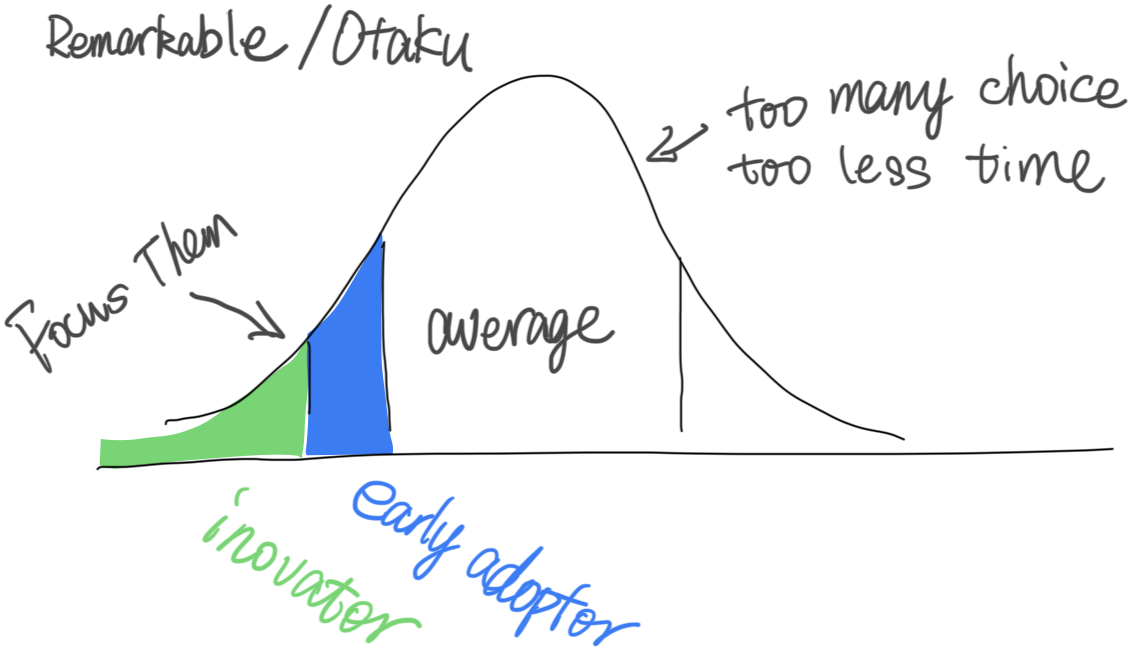 Remarkable / Otaku
too many choice
too less time
Focus Them
average
inovator
early adoptor